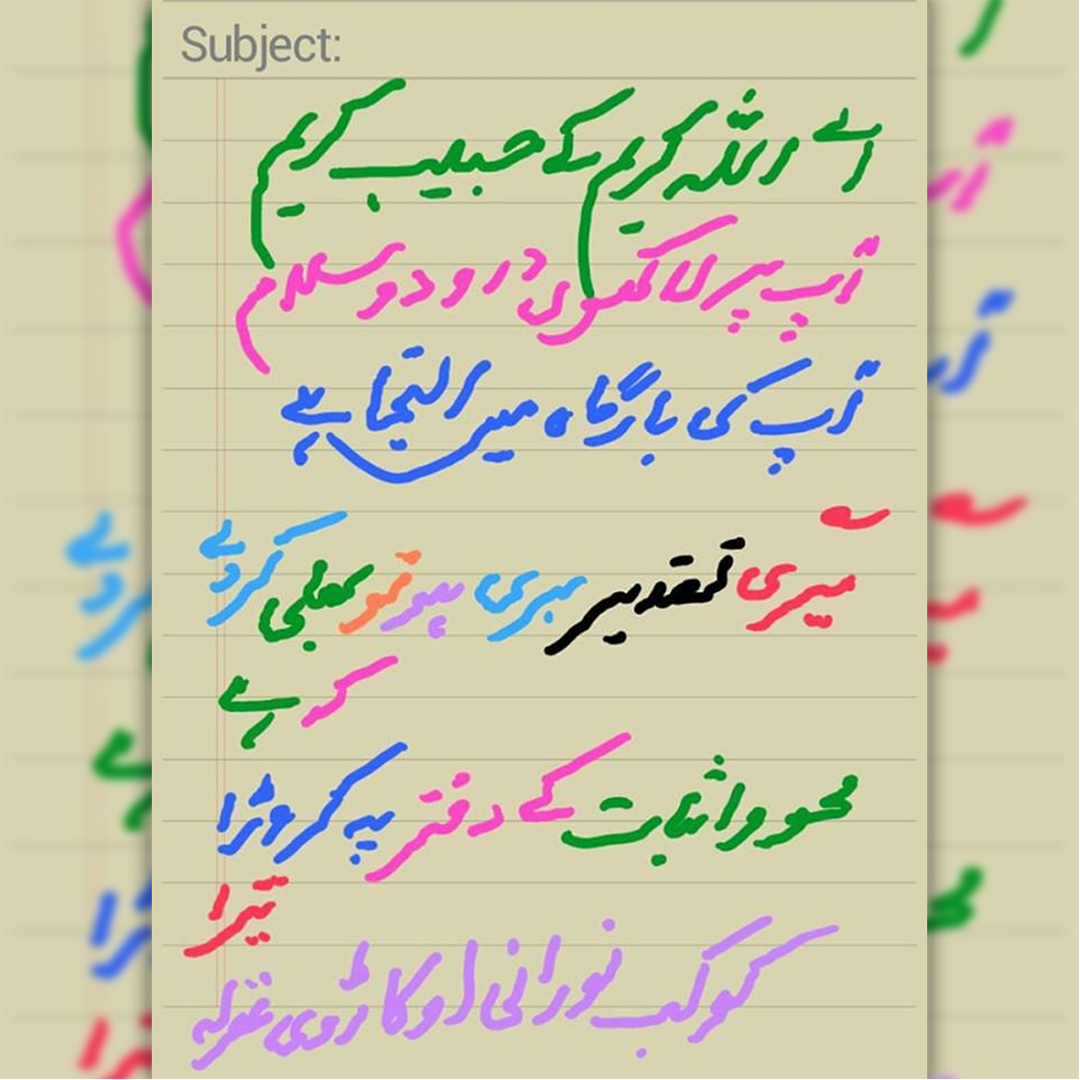 Subject:
اے اللہ کریم کے حبیب کریم
آپ پر لاکھوں درود و سلام
آپ کی بارگاہ میں التجا ہے
میری تقدیر بری ہو تو بھلی کردے
کہ ہے
محو و اثبات کے دفتر پہ کروڑا
تیرا
کوکب نورانی اوکاڑوی غفرلہ